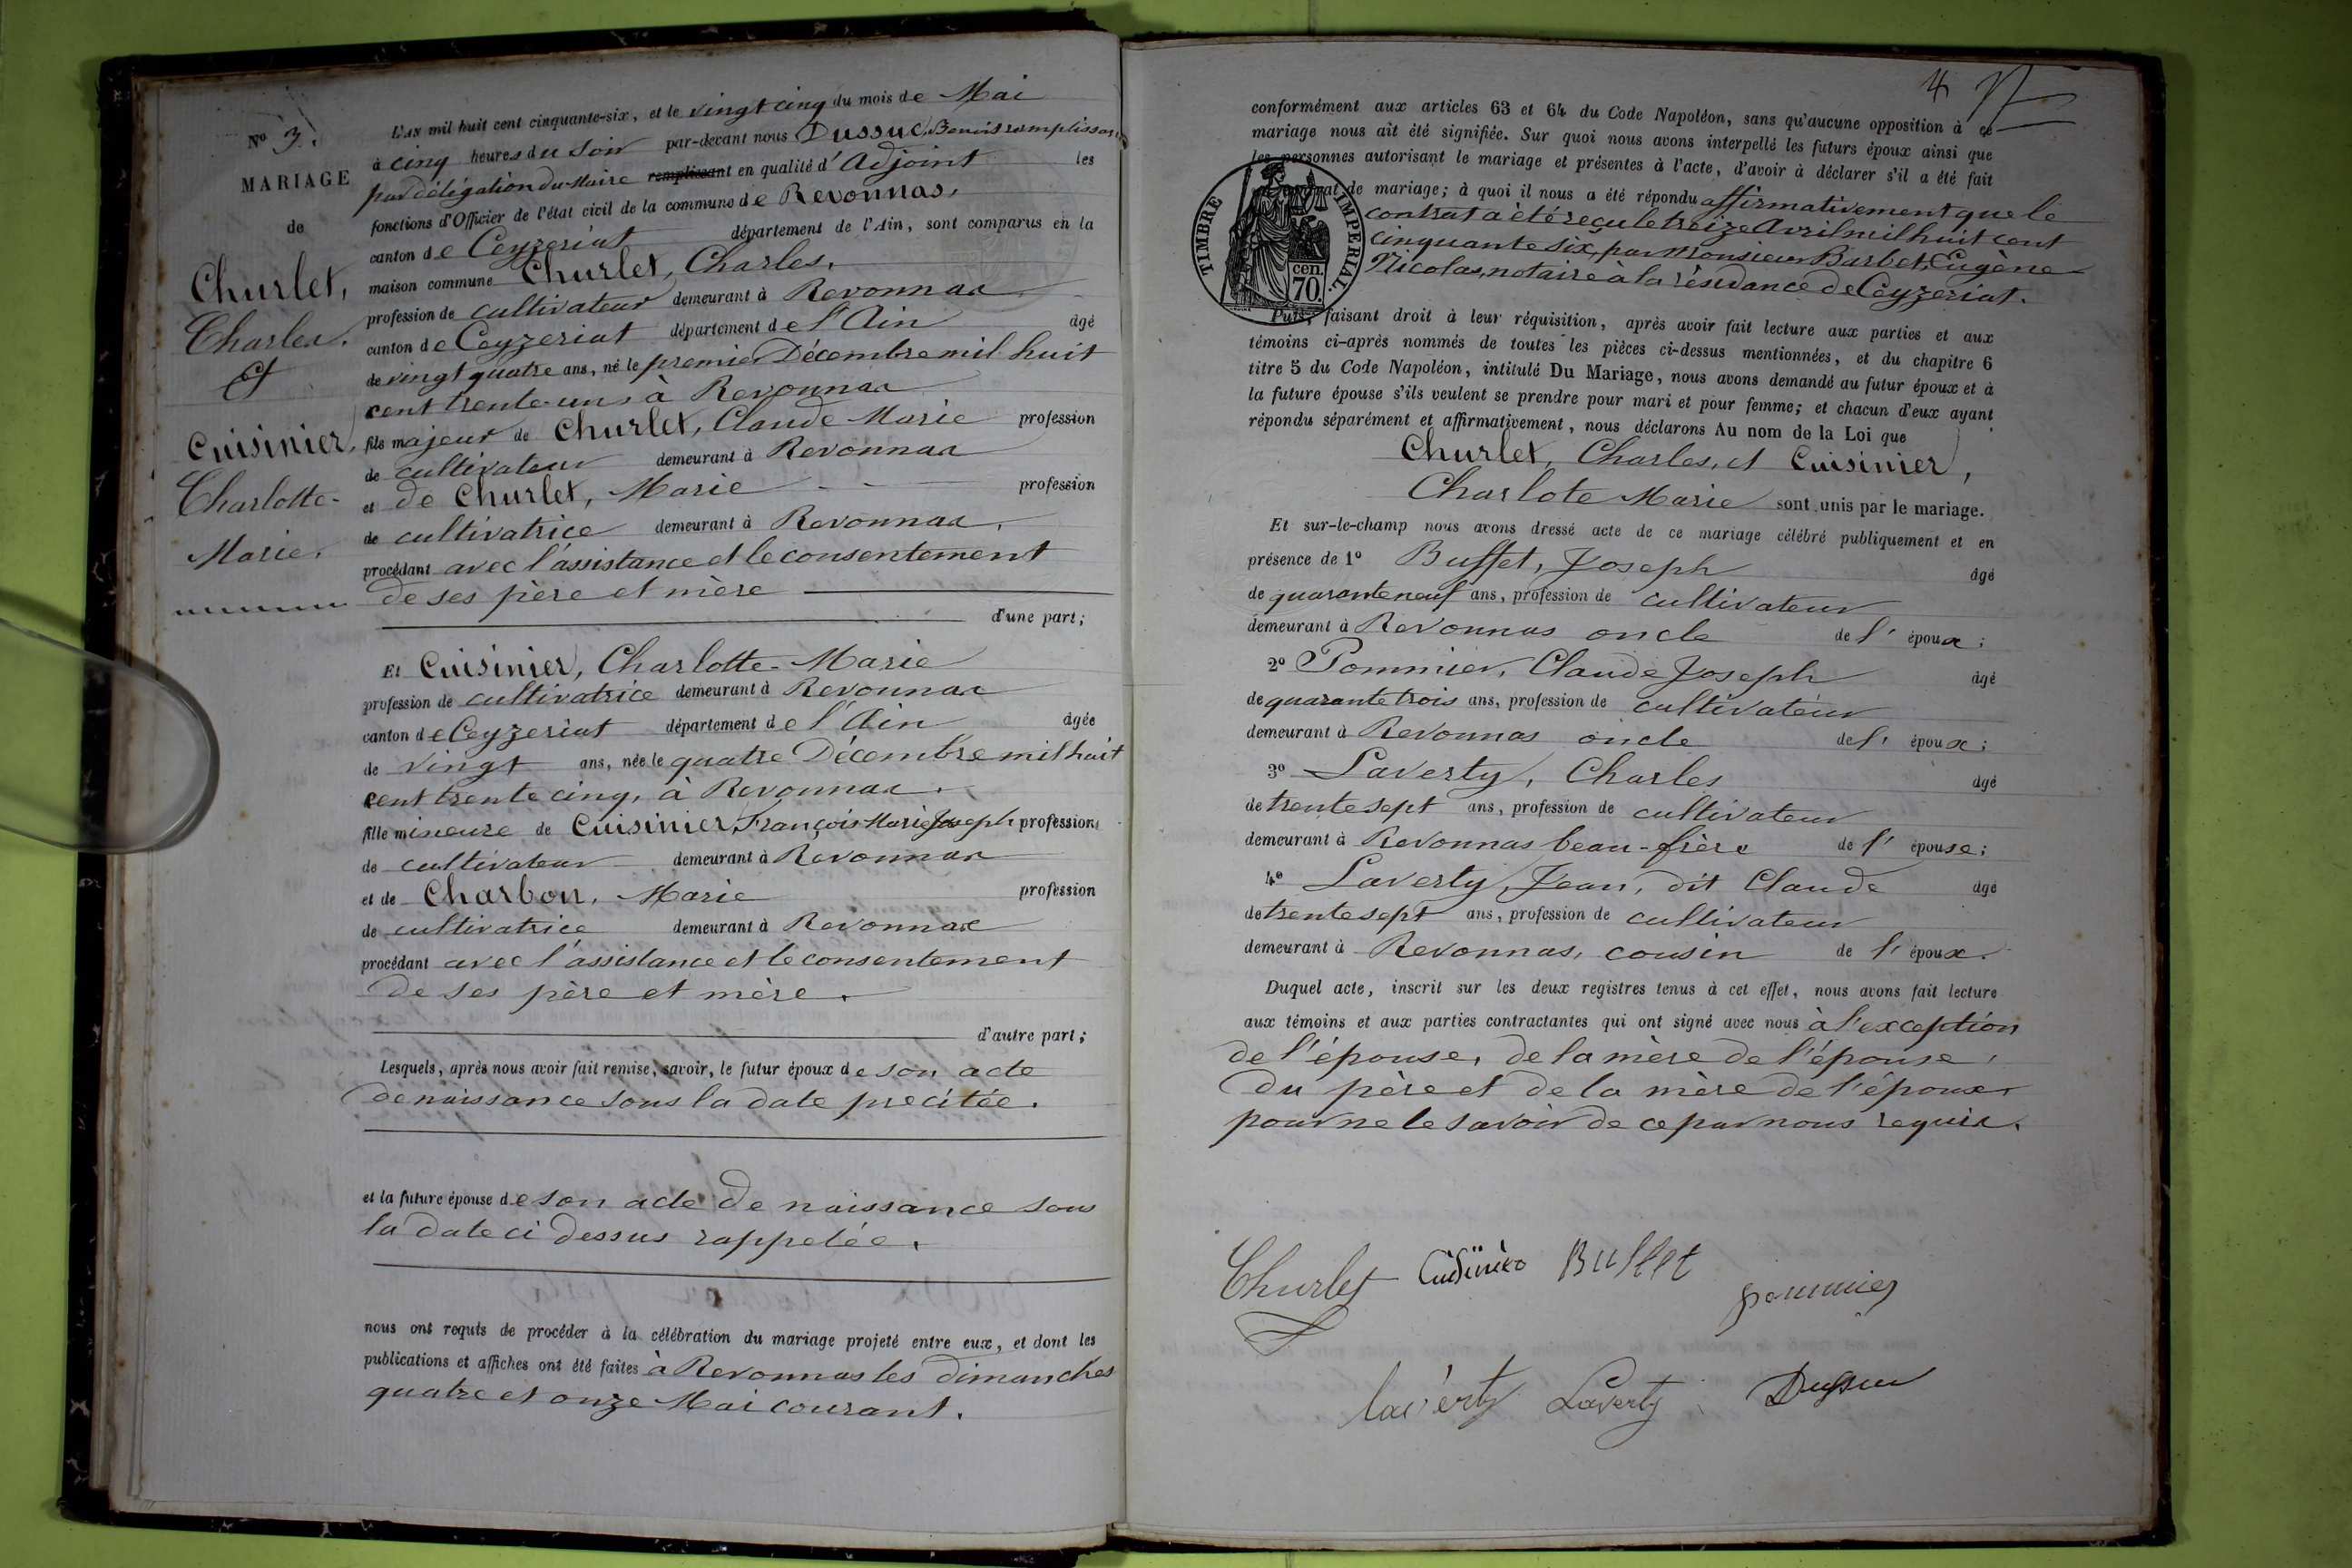 N° 3.
MARIAGE
de
Churlet,
Charles.
Et
Cuisinier,
Charlotte-
Marie.
L'AN mil huit cent cinquante-six, et le vingt cinq du mois de Mai
à cinq heures du soir par-devant nous Dussuc, Benoit remplissant
par délégation du Maire remplissant en qualité d'Adjoint les
fonctions d'Officier de l'état civil de la commune de Revonnas,
canton de Ceyzeriat département de l'Ain, sont comparus en la
maison commune Churlet, Charles,
profession de cultivateur demeurant à Revonnas
canton de Ceyzeriat département de l'Ain âgé
de vingt quatre ans, né le premier Décembre mil huit
cent trente-un, à Revonnas
fils majeur de Churlet, Claude Marie profession
de cultivateur demeurant à Revonnas
et de Churlet, Marie profession
de cultivatrice demeurant à Revonnas,
procédant avec l'assistance et le consentement
de ses père et mère
d'une part;
Et Cuisinier, Charlotte-Marie
profession de cultivatrice demeurant à Revonnas
canton de Ceyzeriat département de l'Ain âgée
de vingt ans, née le quatre Décembre mil huit
cent trente cinq, à Revonnas.
fille mineure de Cuisinier, François Marie Joseph profession
de cultivateur demeurant à Revonnas
et de Charbon, Marie profession
de cultivatrice demeurant à Revonnas
procédant avec l'assistance et le consentement
de ses père et mère.
d'autre part;
Lesquels, après nous avoir fait remise, savoir, le futur époux de son acte
de naissance sous la date precitée.
et la future épouse de son acte de naissance sous
la date ci dessus rappelée.
nous ont requis de procéder à la célébration du mariage projeté entre eux, et dont les
publications et affiches ont été faites à Revonnas les dimanches
quatre et onze Mai courant.
4
conformément aux articles 63 et 64 du Code Napoléon, sans qu'aucune opposition à ce
mariage nous ait été signifiée. Sur quoi nous avons interpellé les futurs époux ainsi que
les personnes autorisant le mariage et présentes à l'acte, d'avoir à déclarer s'il a été fait
contrat de mariage; à quoi il nous a été répondu affirmativement que le
contrat a été reçu le treize Avril mil huit cent
cinquante six, par Monsieur Barbet, Eugène
Nicolas, notaire à la résidance de Ceyzeriat.
TIMBRE IMPERIAL.
cen.
70.
Puis, faisant droit à leur réquisition, après avoir fait lecture aux parties et aux
témoins ci-après nommés de toutes les pièces ci-dessus mentionnées, et du chapitre 6
titre 5 du Code Napoléon, intitulé Du Mariage, nous avons demandé au futur époux et à
la future épouse s'ils veulent se prendre pour mari et pour femme; et chacun d'eux ayant
répondu séparément et affirmativement, nous déclarons Au nom de la Loi que
Churlet, Charles, et Cuisinier,
Charlote Marie sont unis par le mariage.
Et sur-le-champ nous avons dressé acte de ce mariage célébré publiquement et en
présence de 1° Buffet, Joseph âgé
de quarante neuf ans, profession de cultivateur
demeurant à Revonnas oncle de l'époux;
2° Pommier, Claude Joseph âgé
de quarante trois ans, profession de cultivateur
demeurant à Revonnas oncle de l'époux;
3° Laverty, Charles âgé
de trente sept ans, profession de cultivateur
demeurant à Revonnas beau-frère de l'épouse;
4° Laverty, Jean, dit Claude âgé
de trente sept ans, profession de cultivateur
demeurant à Revonnas, cousin de l'époux.
Duquel acte, inscrit sur les deux registres tenus à cet effet, nous avons fait lecture
aux témoins et aux parties contractantes qui ont signé avec nous à l'exception
de l'épouse, de la mère de l'épouse,
du père et de la mère de l'époux
pour ne le savoir de ce par nous requis.
Churlet Cuisinier Buffet
pommier
laverty Laverty Dussuc